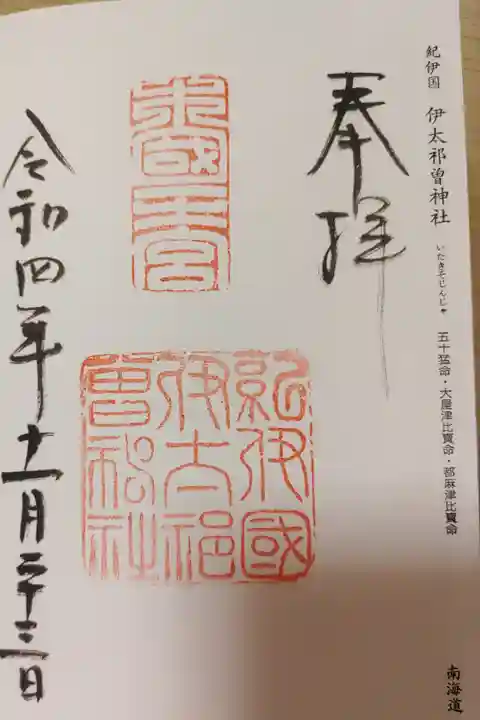 紀伊国 伊太祁曽神社 いたきそじんじゃ 五十猛命・大屋津比賣命・都麻津比賣命 南海道
奉拝
紀伊國
伊太祁
曽神社
令和四年十一月二十三日